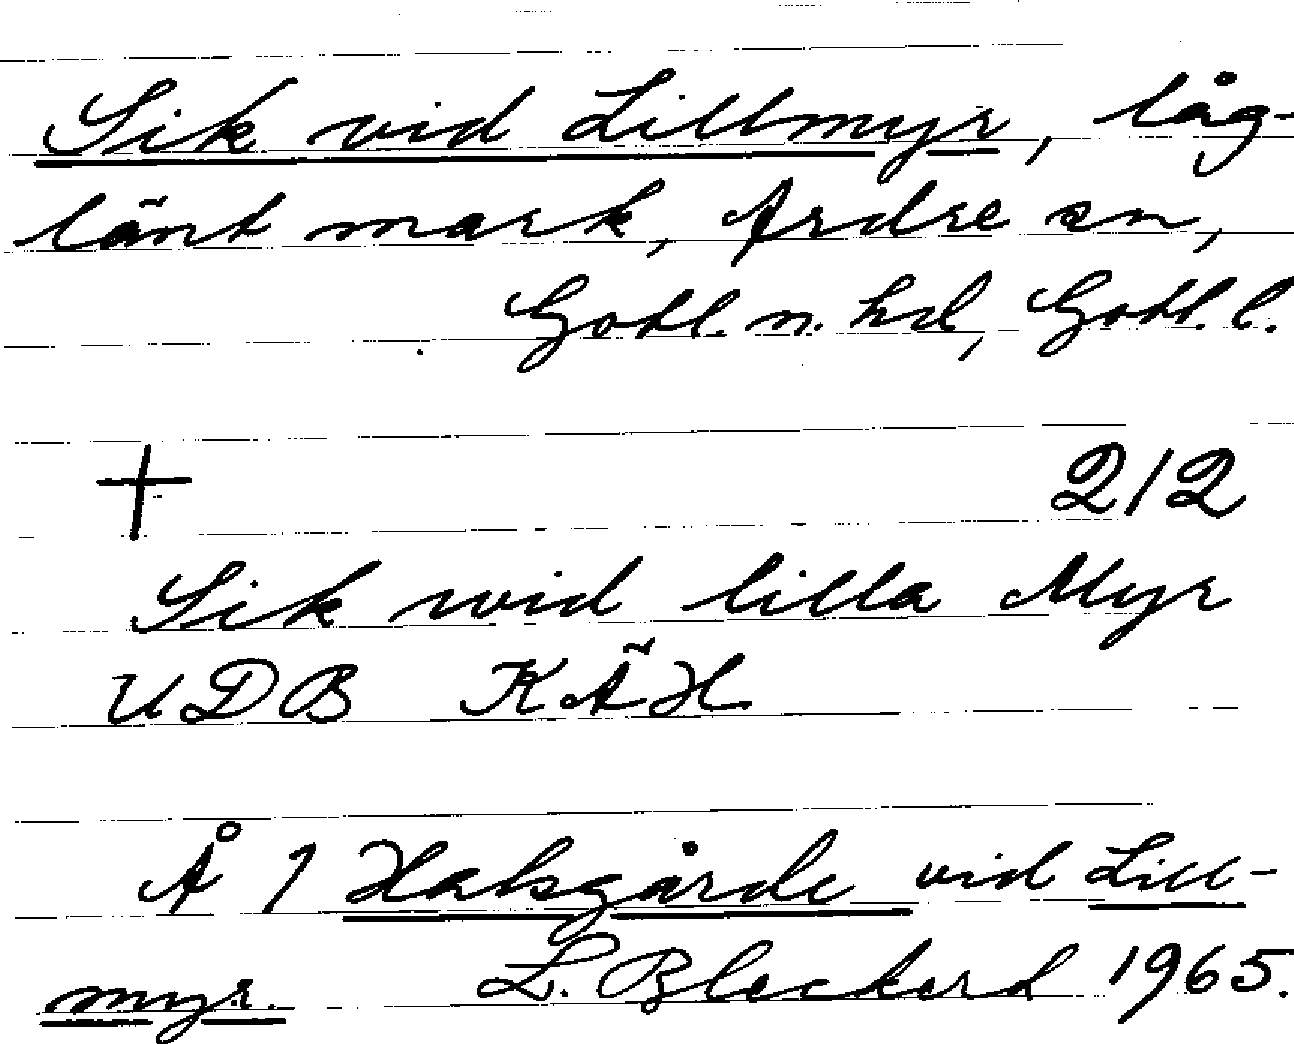 Sik vid Lillmyr, låg-
länt mark, Ardre sn,
Gotl. n. hd, Gotl. l.
+ 212
Sik wid lilla Myr
UDB KÄH
Å 1 Halsgårde vid Lill-
myr. L. Bleckerd 1965.